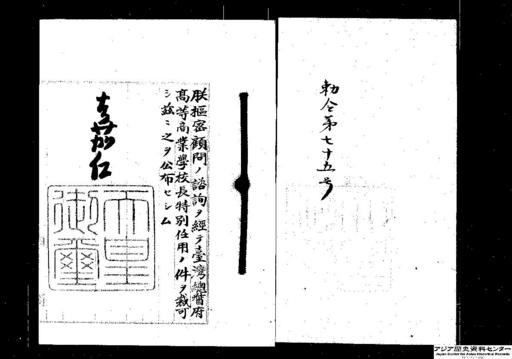 勅令第七十五号
朕樞密顧問ノ諮詢ヲ經テ臺灣總督府
高等商業學校長特別任用ノ件ヲ裁可
シ茲ニ之ヲ公布セシム
嘉仁
天皇
御璽
アジア歴史資料センター
Japan Center for Asian Historical Records